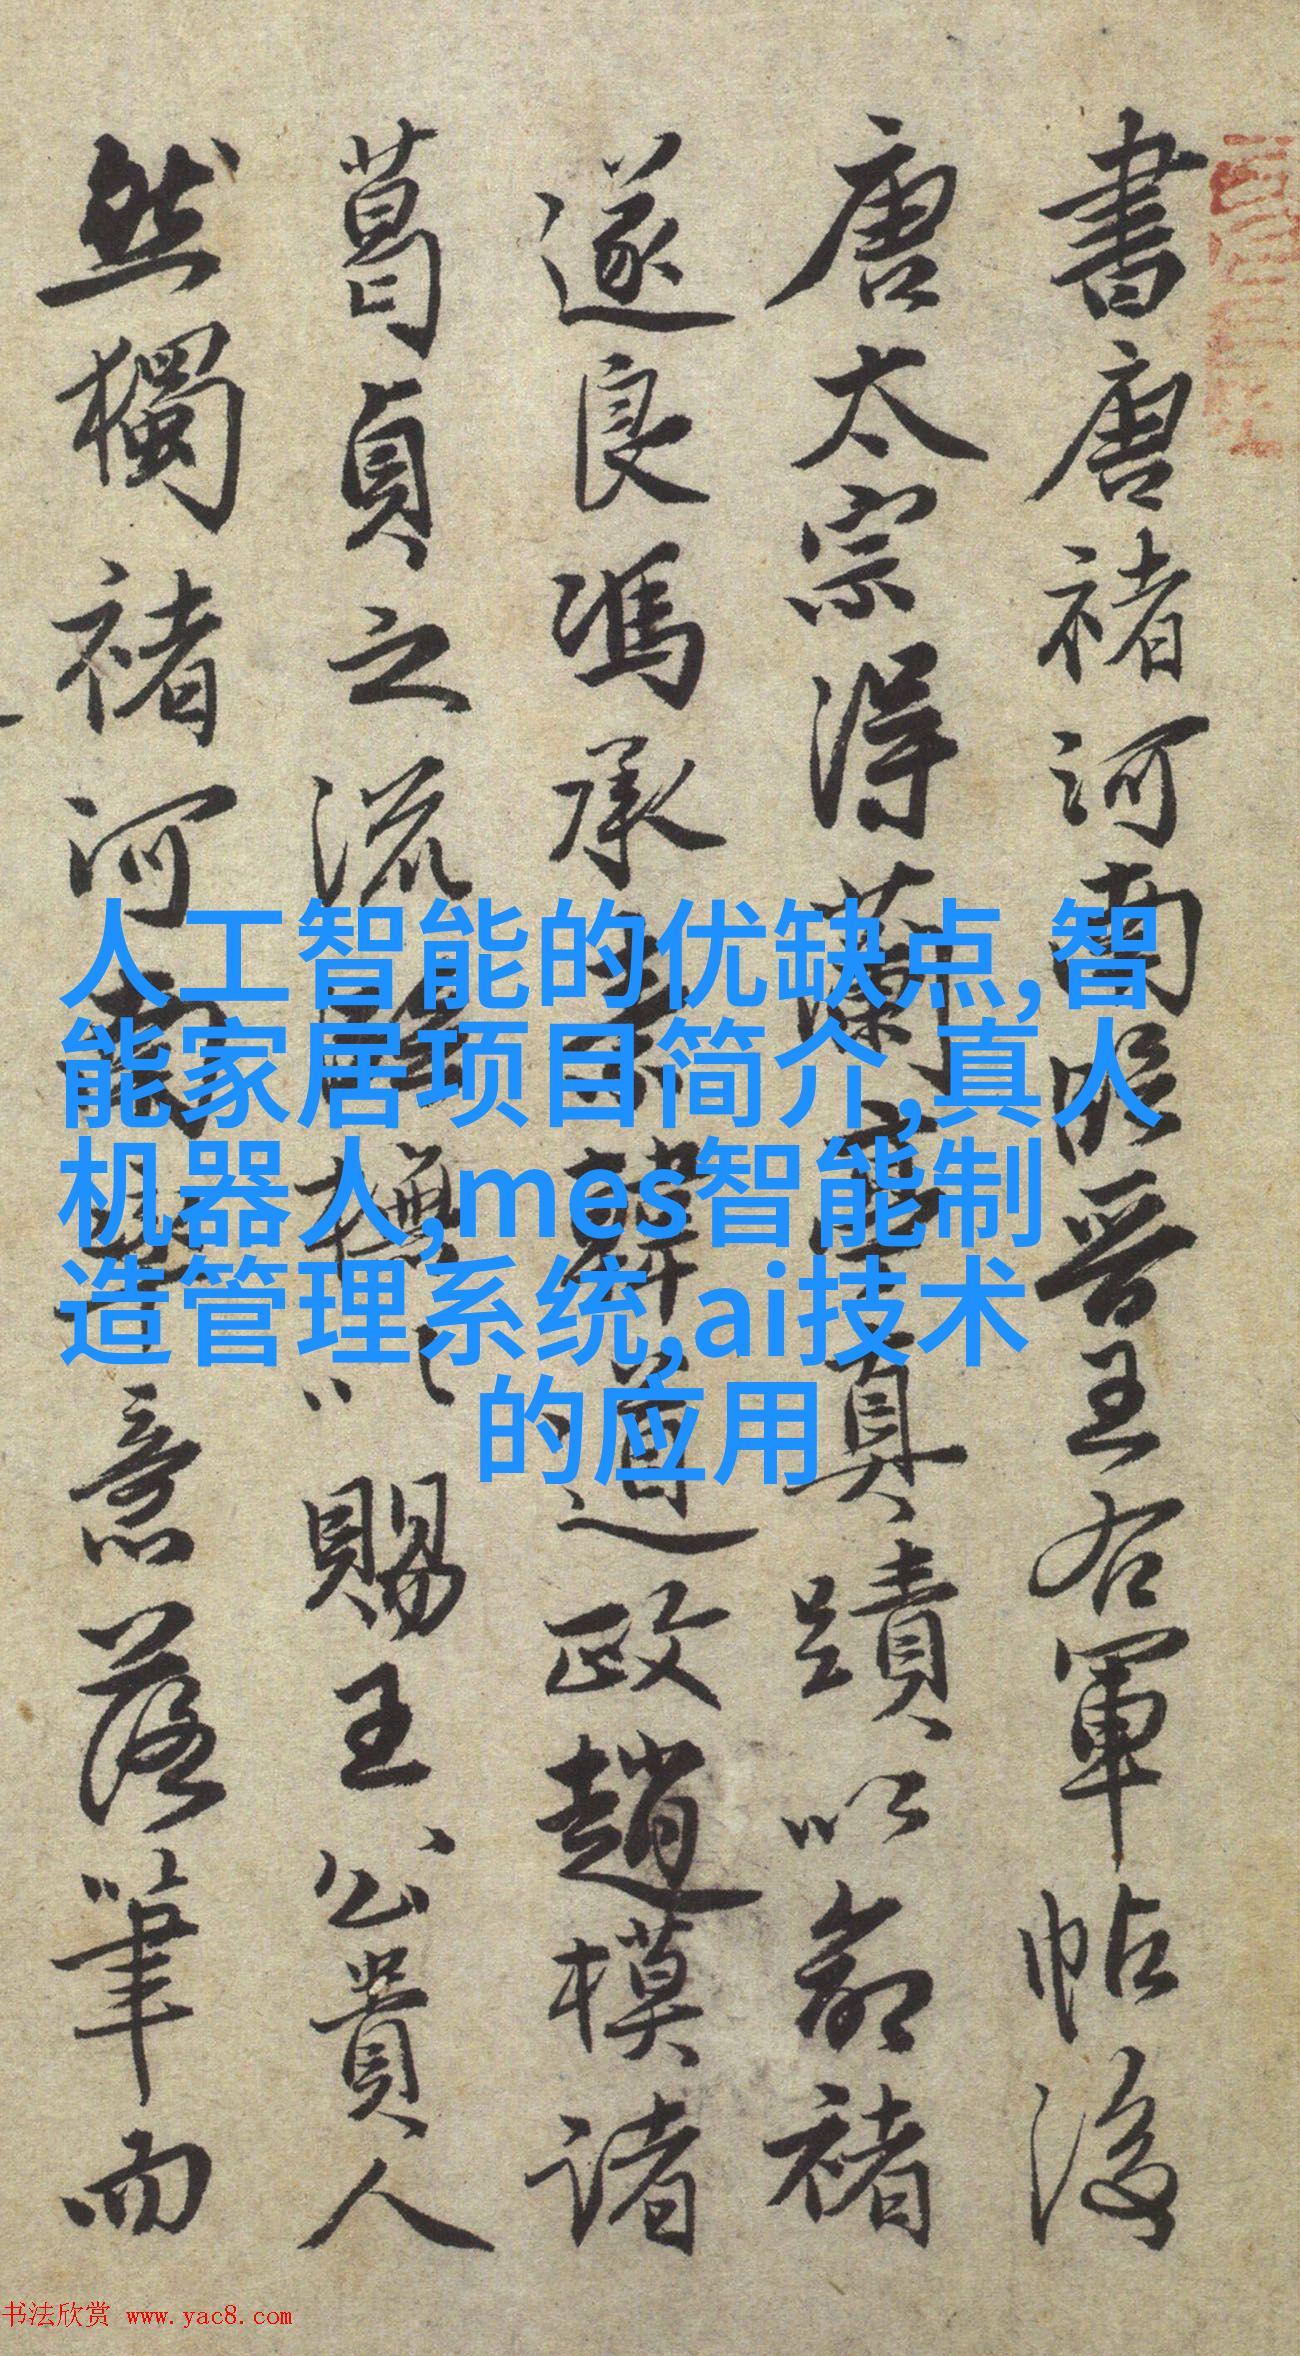 書唐褚河南臨晉王右軍帖後
唐太宗得蘭亭真蹟以命褚
遂良馮承素韓道政趙模諸
葛貞之流模以賜王公貴人
然獨褚河南意落筆而
人工智能的优缺点,智
能家居项目简介,真人
机器人,mes智能制
造管理系统,ai技术
的应用
书法欣赏 www.yac8.com